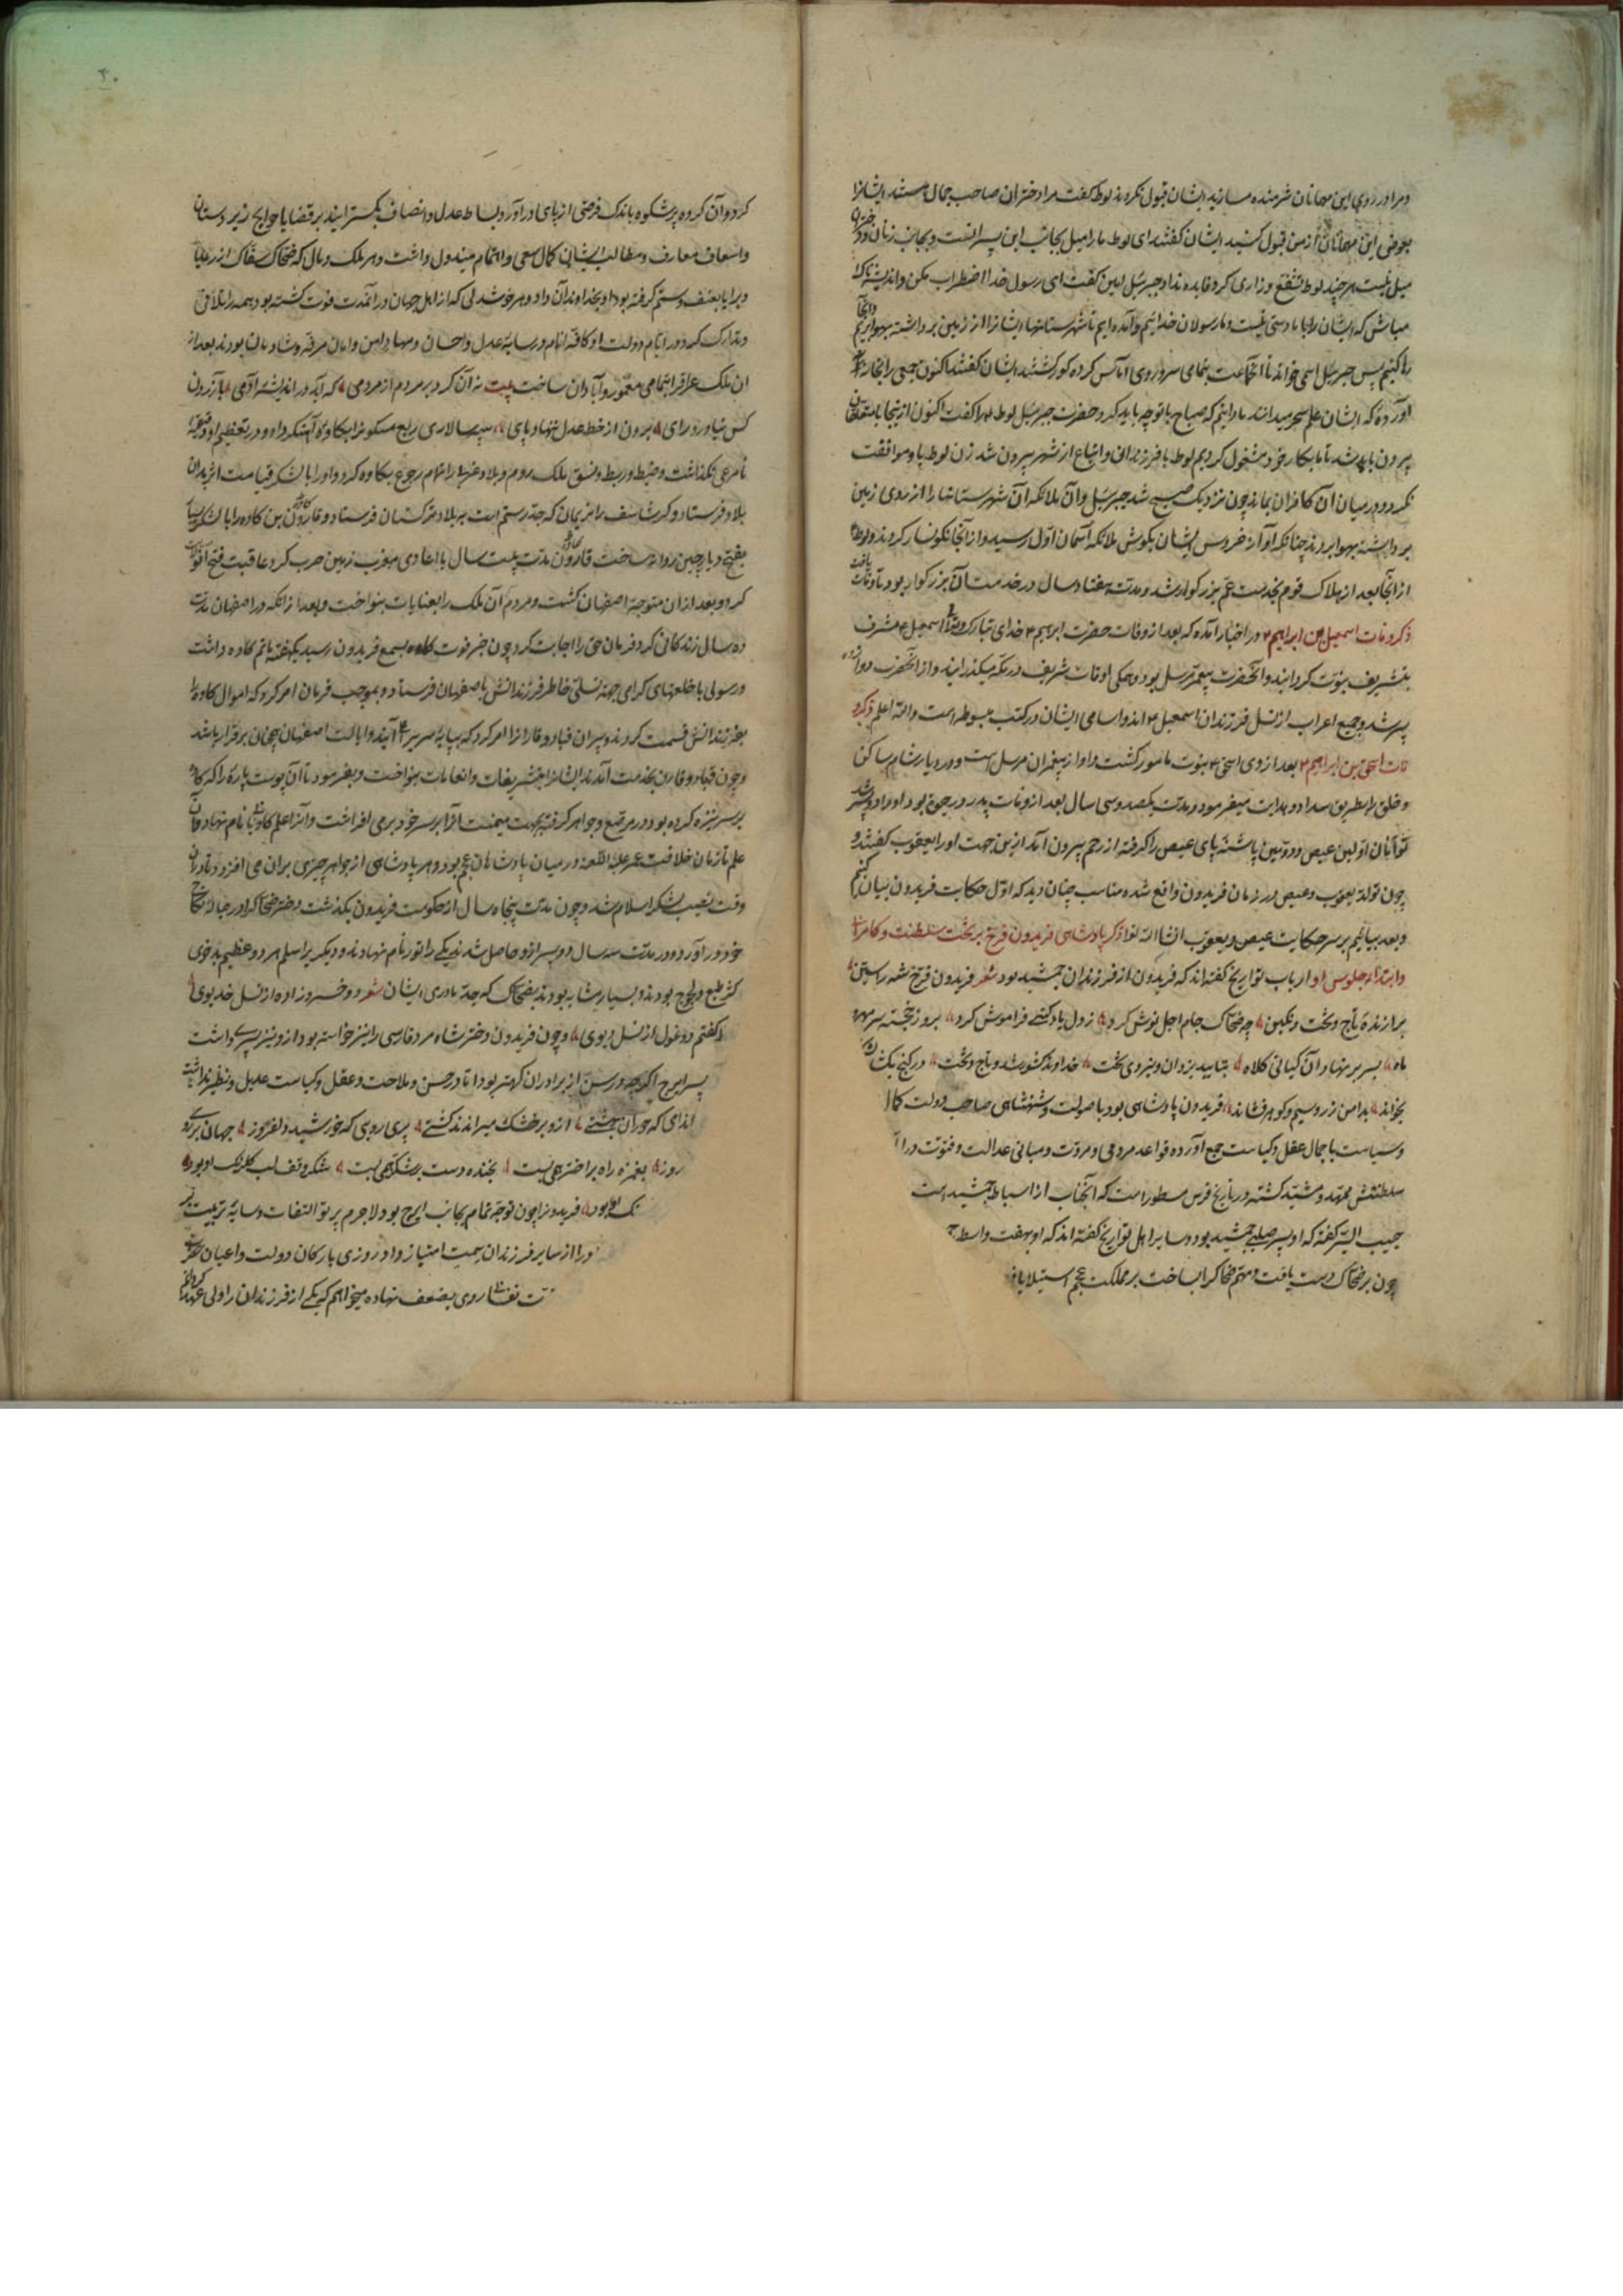 ومرا در روی این مهمانان شرمنده مسازید ایشان قبول نکردند لوط کفت مرا دختران صاحب جمال هستند ایشانرا
بعوض این مهمانان از من قبول کنید ایشان کفتند ای لوط ما را میل بجانب این پسرانست و بجانب زنان و دختران
میل نیست هر چند لوط تشفع و زاری کرد فایده نداد جبرئیل امین کفت ای رسول خدا اضطراب مکن و اندیشه ناک
مباش که ایشان را با ما دستی نیست و ما رسولان خدائیم و آمده ایم تا شهرستانهاء ایشانرا از زمین برداشته بهوا بریم و از آنجا
رها کنیم پس جبرئیل اسمی خواند تا آنجماعت بتمامی سر و روی آماس کرده کور کشتند ایشان کفتند اکنون جمعی را بخانه
آورده که ایشان علم سحر میدانند ما دانیم که صباح با تو چه باید کرد حضرت جبرئیل لوط را کفت اکنون ازینجا با متعلقان
بیرون باید شد تا ما بکار خود مشغول کردیم لوط با فرزندان و اتباع از شهر بیرون شد زن لوط با او موافقت
نکرد و در میان آن کافران بماند چون نزدیک صبح شد جبرئیل و آن ملائکه آن شهرستانها را از روی زمین
برداشته بهوا بردند چنانکه آواز خروس ایشان بکوش ملائکه آسمان اول رسید و از آنجا نکونسار کردند و لوط
از آنجا بعد از هلاک قوم بخدمت عم بزرکوار شد و مدت هفتاد سال در خدمت آن بزرکوار بود تا وفات یافت
ذکر وفات اسمعیل بن ابراهیم ۴ در اخبار آمده که بعد از وفات حضرت ابرهیم ۴ خدای تبارک و تعالی اسمعیل ۴ مشرف
بتشریف نبوت کردانید و آنحضرت پیغمبر مرسل بود و همکی اوقات شریف در مکه میکذرانید و از آنحضرت دوازده
پسر شد و جمیع اعراب از نسل فرزندان اسمعیل ۴ اند و اسامی ایشان در کتب مبسوطه است والله اعلم ذکر و
فات اسحق بن ابراهیم ۴ بعد از وی اسحق ۴ بنبوت مامور کشت و او از پیغمبران مرسل است و در دیار شام ساکن
و خلق را بطریق سداد و هدایت میفرمود و مدت یکصد و سی سال بعد از وفات پدر در حیوة بود او را دو پسر شد
توأمان اولین عیص و دومین پاشنه پای عیص را کرفته از رحم بیرون آمد ازین جهت او را یعقوب کفتند و
چون تولد یعقوب و عیص در زمان فریدون واقع شده مناسب چنان دید که اول حکایت فریدون بیان کنیم
و بعد بیائیم بر سر حکایت عیص و یعقوب انشاالله تعالی ذکر پادشاهی فریدون فرخ بر تخت سلطنت و کامرانی
و ابتداء جلوس او ارباب تواریخ کفته اند که فریدون از فرزندان جمشید بود شعر فریدون فرخ شه راستین
برازنده تاج و تخت و نکین چو ضحاک جام اجل نوش کرد ز دل یاد کشتی فراموش کرد بروز خجسته سر مهر
ماه بسر بر نهاد آن کیانی کلاه بتایید یزدان و نیروی تخت خداوند کشور شد و تاج و تخت در کنج بکشاد
بخواند بدامن زر و سیم و کوهر فشاند فریدون پادشاهی بود با صولت و شهنشاهی صاحب دولت کمال
و سیاست با جمال عقل و کیاست جمع آورده قواعد مردمی و مروت و مبانی عدالت و فتوت در ا
سلطنتش ممهد و مشید کشته در تاریخ فرس مسطور است که آنجناب از اسباط جمشید است
حبیب السیر کفته که او پسر صلبی جمشید بود و سایر اهل تواریخ کفته اند که او بهفت واسطه
چون بر ضحاک دست یافت و مهم ضحاک را بساخت بر مملکت عجم استیلا یافت
کرد و آن کروه پرشکوه باندک فرصتی از پای درآورد و بساط عدل و انصاف بکسترانید بر قضایا حوایج زیردستان
و اسعاف معارف و مطالب ایشان کمال سعی و اهتمام مبذول داشت و هر ملک و مال که ضحاک سفاک از رعایا
و برایا بعنف و ستم کرفته بود او بخداوندان داد و هر خوشدلی که از اهل جهان در آنمدت فوت کشته بود همه را تلافی
و تدارک کرد و در ایام دولت او کافه انام در سایه عدل و احسان و مهاد امن و امان مرفه و شادمان بودند بعد از
آن ملک عراق را بتمامی معمور و آبادان ساخت بیت نه آن کرد بر مردم از مردمی که آید در اندیشه آدمی بآزردن
کس نیاورد رای برون از خط عدل ننهاد پای سپه سالاری ربع مسکونرا بکاوه آهنکر داد و در تعظیم او دقیقه
نامرعی نکذاشت و ضبط و ربط و نسق ملک روم و بلاد غرب را تمام رجوع بکاوه کرد و او را با لشکر قیامت اثر بدان
بلاد فرستاد و کرشاسف را نریمان که جد رستم است به بلاد ترکستان فرستاد و قارون بن کاوه را با لشکر بسیار
بفتح دیار چین روانه ساخت قارون مدت بیست سال با اعادی مغرب زمین حرب کرد عاقبت فتح آفاق
کرد و بعد از آن متوجه اصفهان کشت و مردم آن ملک را بعنایات بنواخت و بعد از آنکه در اصفهان مدت
ده سال زندکانی کرد فرمان حق را اجابت کرد چون خبر فوت کاوه بسمع فریدون رسید یکهفته ماتم کاوه داشت
و رسولی با خلعتهای کرامی جهت تسلی خاطر فرزندانش باصفهان فرستاد و بموجب فرمان امر کرد که اموال کاوه را
بفرزندانش قسمت کردند و پسران قباد و قارنرا امر کرد که بپایه سریر آیند و ایالت اصفهان بهمان برقرار باشد
و چون قباد و قارن بخدمت آمدند ایشانرا بتشریفات و انعامات بنواخت و بفرمود تا آن پوست پاره را که کاوه
بر سر نیزه کرده بود در مرصع و جواهر کرفته بجهت میمنت آنرا بر سر خود برمی افراشت و آنرا علم کاویانی نام نهاد و آن
علم تا زمان خلافت عمر علیه اللعنه در میان پادشاهان عجم بود و هر پادشاهی از جواهر چیزی بران می افزود تا در آن
وقت نصیب لشکر اسلام شد و چون مدت پنجاه سال از حکومت فریدون بکذشت دختر ضحاک را در حباله نکاح
خود درآورد و در مدت سه سال دو پسر ازو حاصل شدند یکی را تور نام نهادند و دیکر را سلم هر دو عظیم بدخوی
کژ طبع و لجوج بودند و بسیار مشابه بودند بضحاک که جد مادری ایشان شعر دو خسرو زاده از نسل خدیوی
کفتم دو غول از نسل دیوی و چون فریدون دختر شاه مرد فارسی را نیز خواسته بود ازو نیز پسری داشت
پسر ایرج اکرچه در سن از برادران کهتر بود اما در حسن و ملاحت و عقل و کیاست عدیل و نظیر نداشت
اندامی که حوران بهشتی ازو بر خشک میراندند کشتی پری رویی که خورشید دلفروز جهان بر وی
روز بغمزه راه بر اختر همی بست بخنده دست بر شکر همی بست شکر وقف لب کلرنک او بود
نک او بود فریدونرا چون توجه تمام بجانب ایرج بود لاجرم پرتو التفات و سایه تربیت بر
و را از سایر فرزندان سمت امتیاز داد روزی با رکان دولت و اعیان حضرت
ت تفاوتا روی بضعف نهاده میخواهم که یکی از فرزندان را ولی عهد کردانم